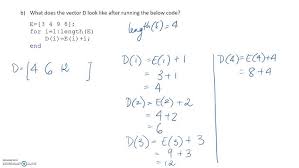 b) What does the vector D look like after running the below code?
E=[3 4 9 8];
for i=1:length(E)
D(i)=E(i)+i;
end
length(E)=4
D=[4 6 12 ]
D(1)=E(1)+1
=3+1
=4
D(2)=E(2)+2
=4+2
=6
D(3)=E(3)+3
=9+3
=12
D(4)=E(4)+4
=8+4